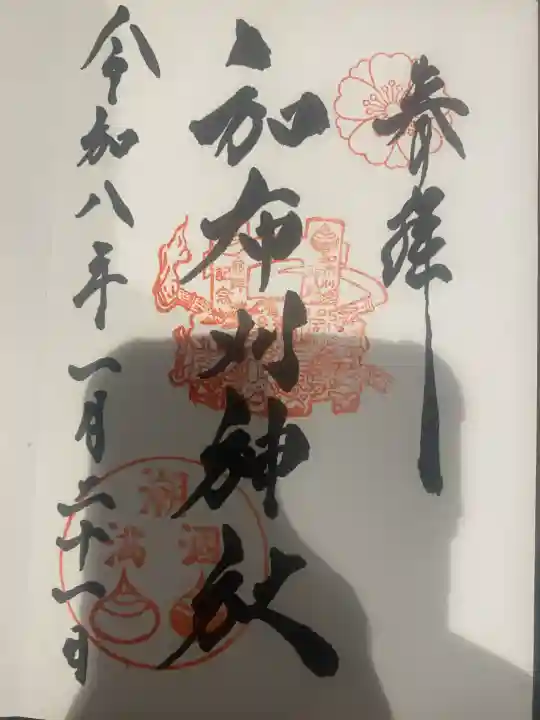 奉拝
和布刈神社
令和八年一月二十一日
記念
潮
涸
満